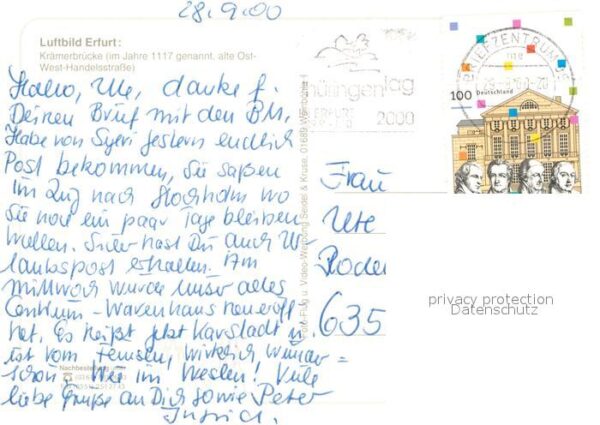 28.9.00
Luftbild Erfurt:
Krämerbrücke (im Jahre 1117 genannt, alte Ost-
West-Handelsstraße)
Hallo, Ute, danke f.
Deinen Brief mit den BM.
Habe von Sigri gestern endlich
Post bekommen, Sie saßen
im Zug nach Stockholm wo
Sie noch ein paar Tage bleiben
wollen. Sicher hast Du auch Ur-
laubspost erhalten. Am
Mittwoch wurde unser altes
Centrum-Warenhaus neu eröff
net. Es heißt jetzt Karstadt u.
ist vom Feinsten, wirklich wunder=
schön, wie im Westen! Viele
liebe Grüße an Dich sowie Peter
Ingrid.
Thüringentag
2000
BRIEFZENTRUM
100 Deutschland
Frau
Ute
Rode
635
Foto-Flug u. Video-Werbung Seidel & Kruse, 01689 Weinböhla
Nachbestellung
privacy protection
Datenschutz